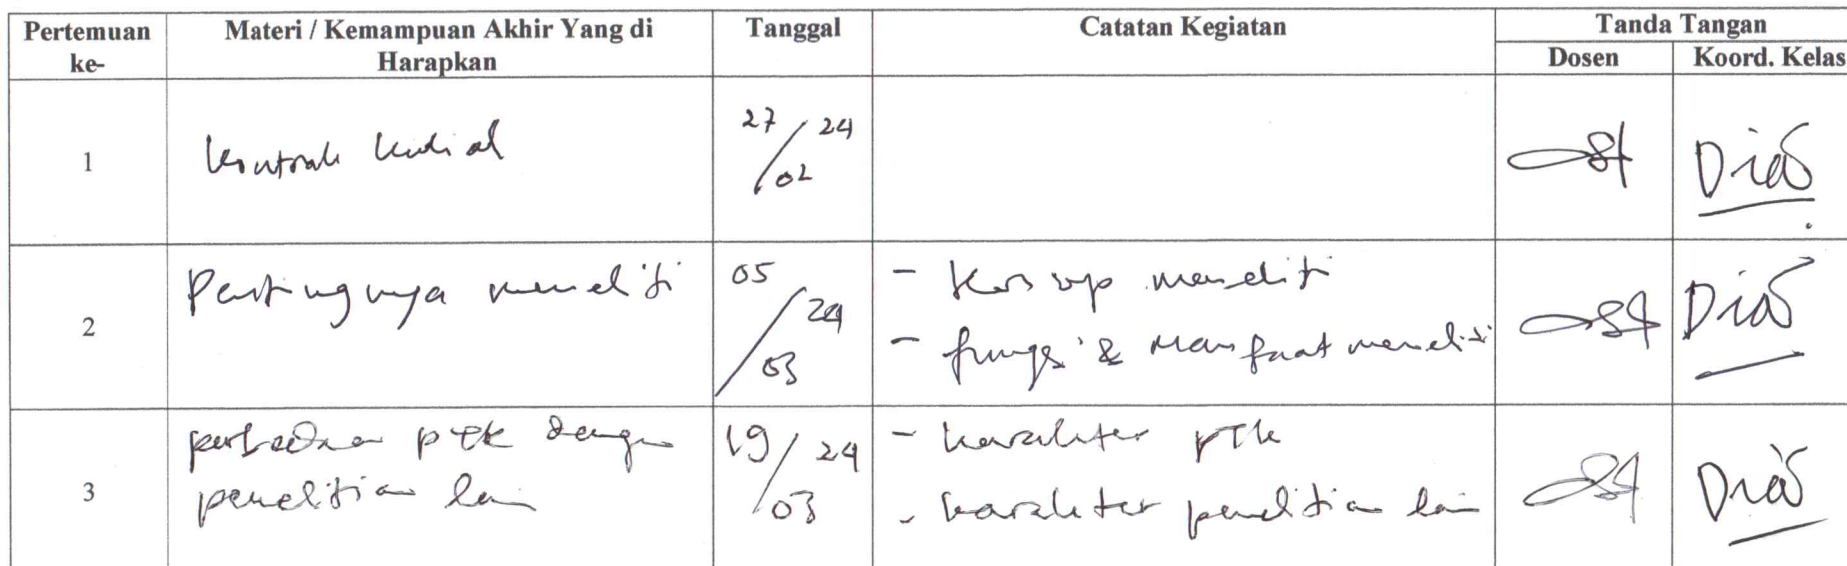 Pertemuan ke-
Materi / Kemampuan Akhir Yang di Harapkan
Tanggal
Catatan Kegiatan
Tanda Tangan
Dosen
Koord. Kelas
1
kontrak
27/24
/02
Dias
2
Pentingnya meneliti
05/24
/03
- Konsep meneliti
- fungsi & manfaat meneliti
Dias
3
perbedaan PTK dengan
penelitian lain
19/24
/03
- karakter PTK
- karakter penelitian lain
Dias